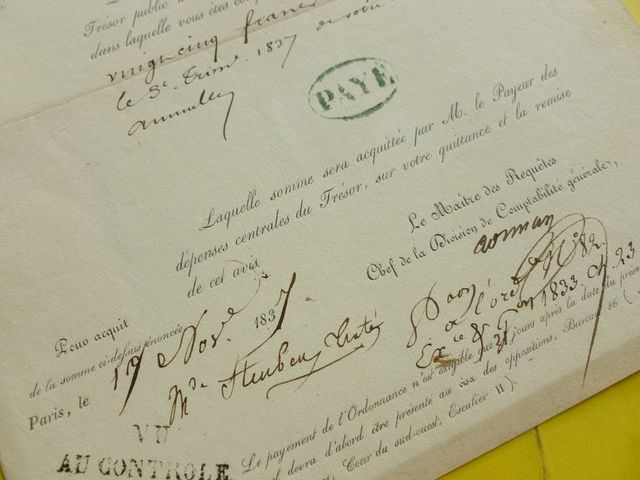 Trésor public
dans laquelle vous êtes
vingt cinq francs
le 3e Trim. 1837 de votre
annuelle
PAYÉ
Laquelle somme sera acquittée par M. le Payeur des
dépenses centrales du Trésor, sur votre quittance et la remise
de cet avis.
Le Maître des Requêtes
Chef de la Division de Comptabilité générale,
Pour acquit
de la somme ci-dessus énoncée
Paris, le 17 Nov. 1837
Mde Steuben
No 82.
1833. Ch. 23
VU
AU CONTROLE
Le payement de l'Ordonnance n'est exigible que jours après la date du
devra d'abord être présenté au visa des oppositions, Bureau 86
Cour du sud-ouest, Escalier II).